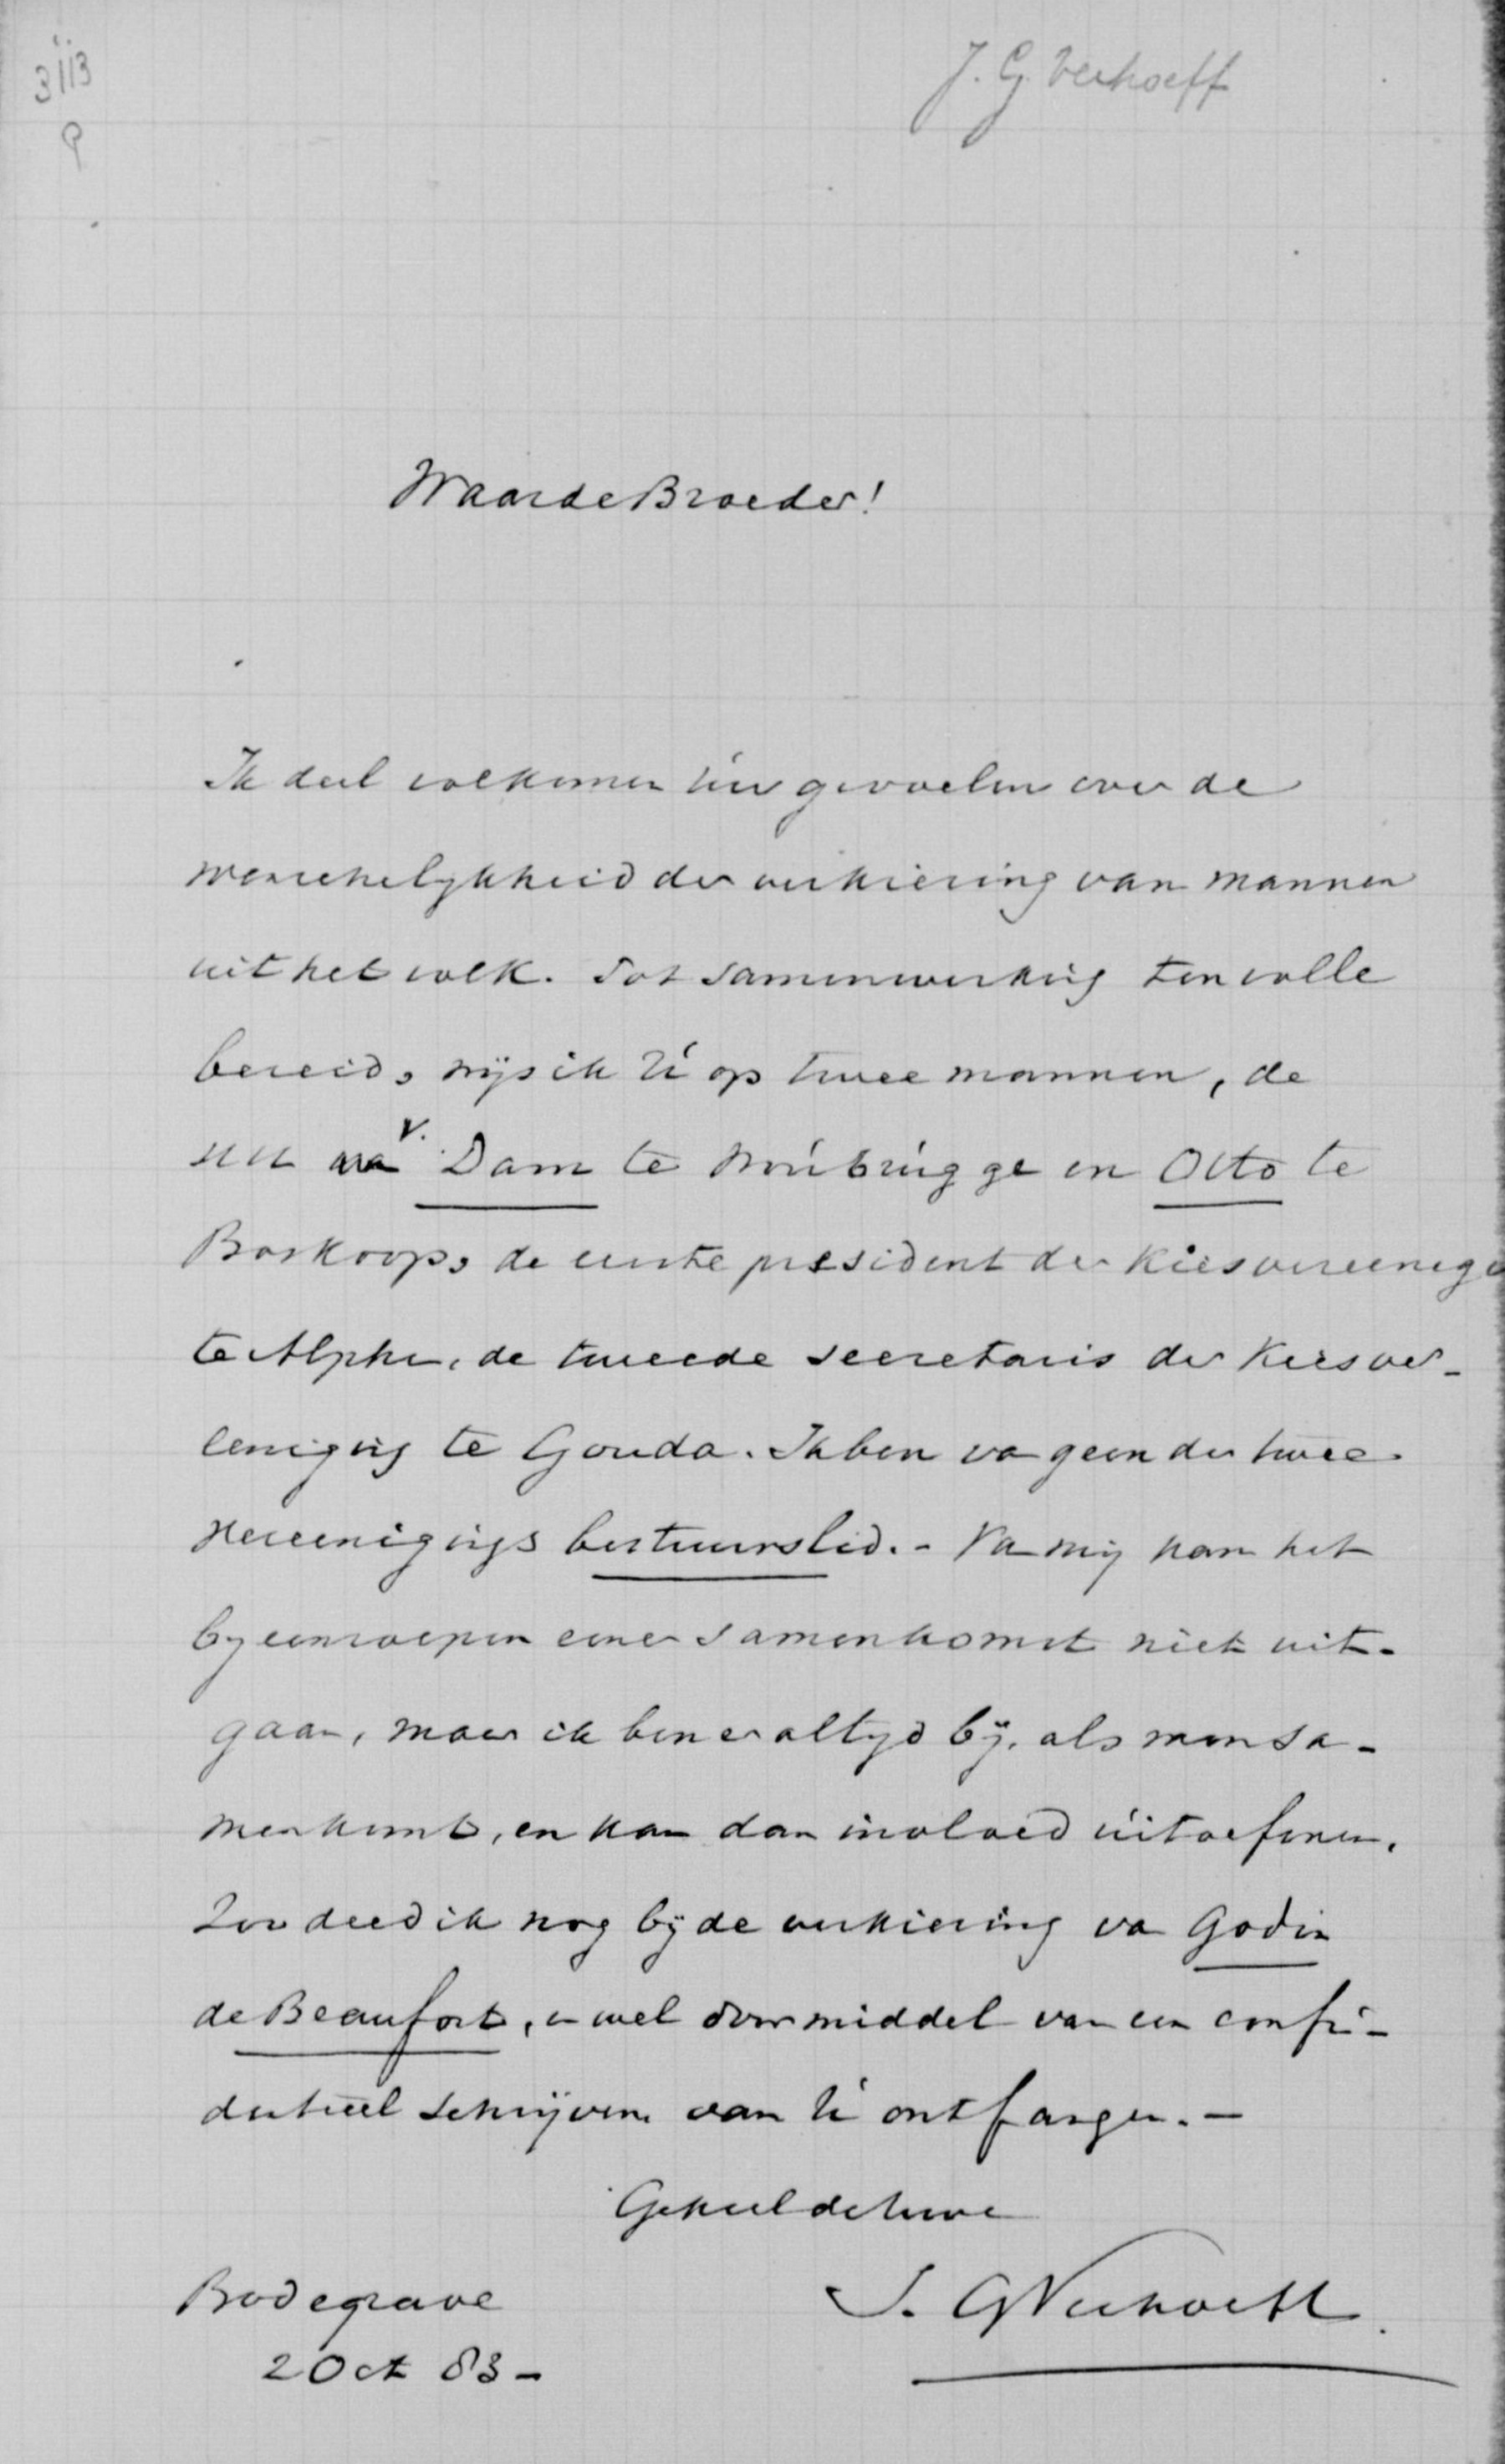 3113
J. G. Verhoeff
Waarde Broeder!
Ik deel volkomen uw gevoelen over de
wenschelykheid der verkiezing van mannen
uit het volk. Tot samenwerking ten volle
bereid, wijs ik U op twee mannen, de
v. Dam te Woubrugge en Otto te
Boskoop, de eerste president der Kiesvereenig
te Alphen, de tweede secretaris der Kiesver-
eeniging te Gouda. Ik ben van geen der twee
Vereenigings bestuurslid. - Van mij kan het
byeenroepen eener samenkomst niet uit-
gaan, maar ik ben er altyd bij, als men sa-
menkomt, en kan dan invloed uitoefenen.
Zoo deed ik nog bij de verkiezing van Godin
de Beaufort, en wel door middel van een confi-
dentieel schrijven van U ontfangen. -
Geheel de Uwe
J. G Verhoeff.
Bodegrave
2 Oct 83 -